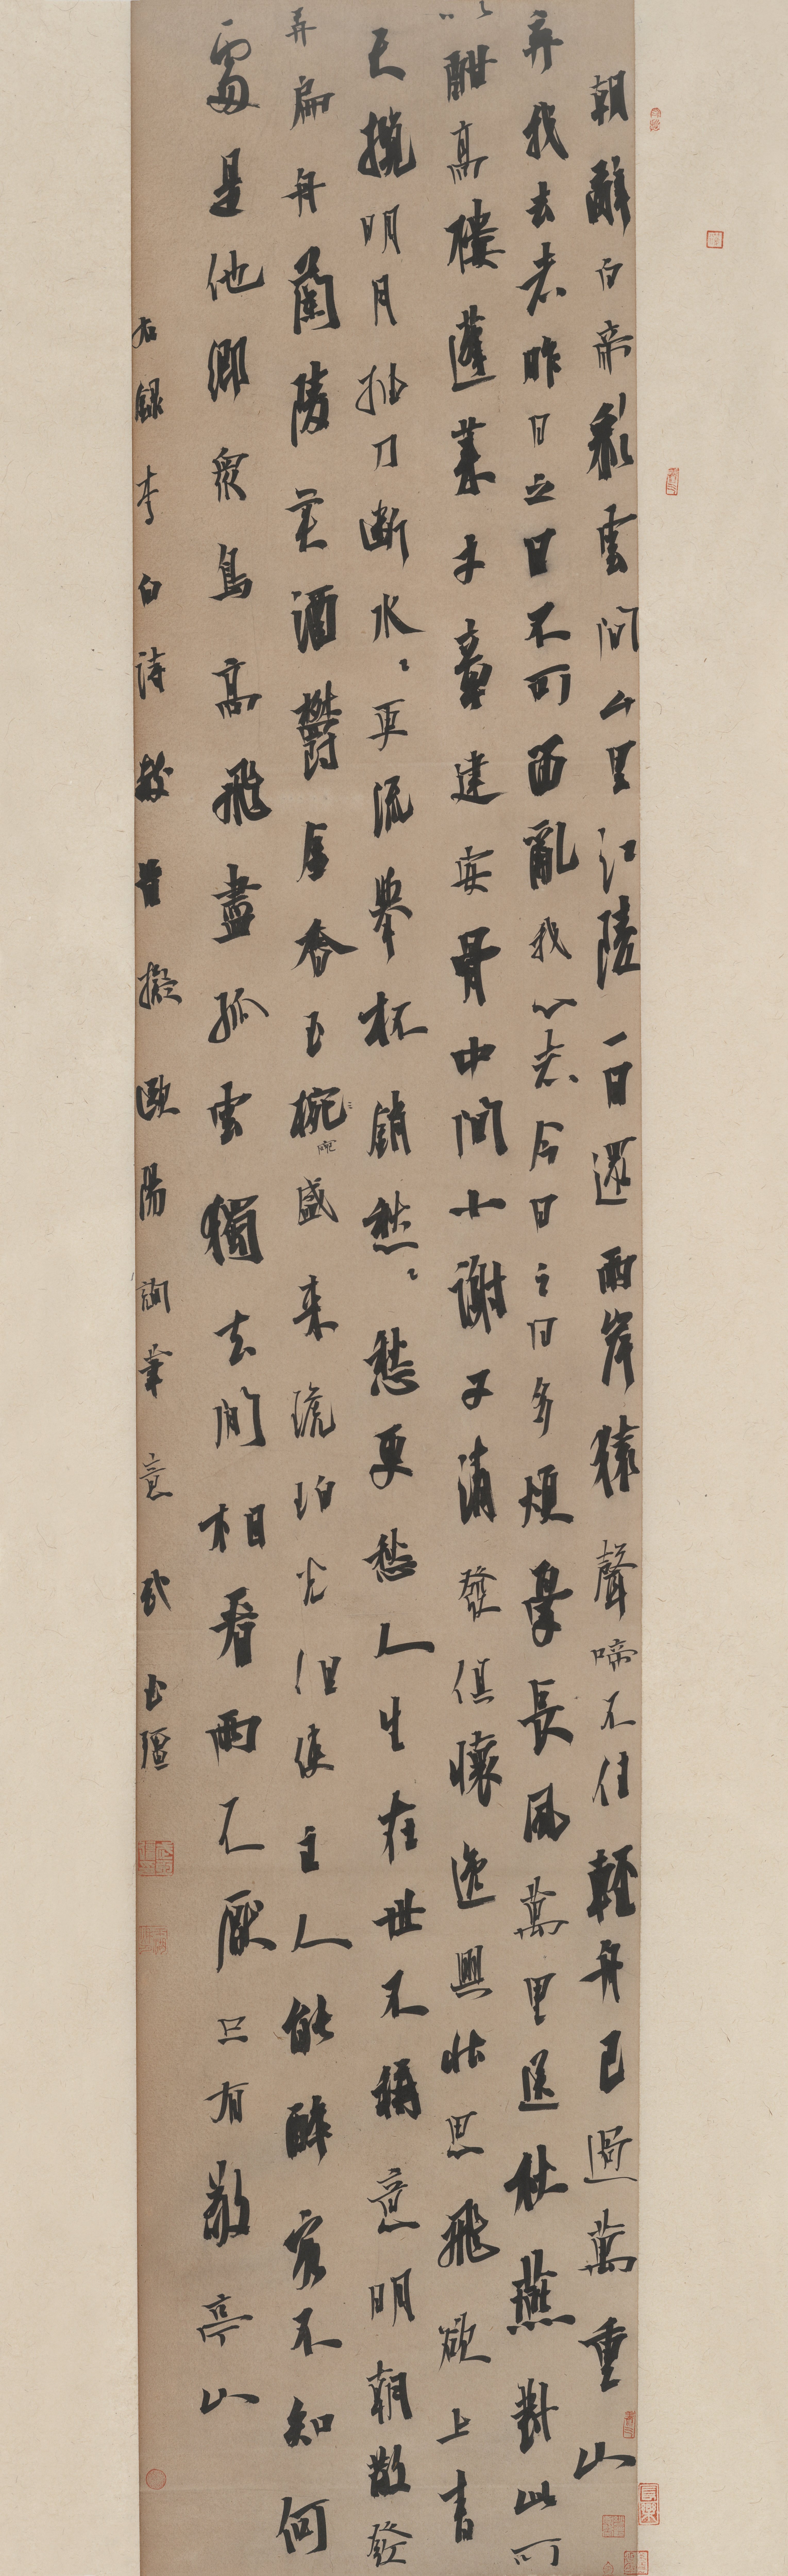 朝辭白帝彩雲間千里江陵一日還兩岸猿聲啼不住輕舟已過萬重山
弃我去者昨日之日不可留亂我心者今日之日多煩憂長風萬里送秋雁對此可
以酣高樓蓬萊文章建安骨中間小謝又清發俱懷逸興壯思飛欲上青
天攬明月抽刀斷水〻更流舉杯銷愁〻愁更愁人生在世不稱意明朝散發
弄扁舟蘭陵美酒鬱金香玉椀盛來琥珀光但使主人能醉客不知何
處是他鄉衆鳥高飛盡孤雲獨去閑相看兩不厭只有敬亭山
右錄李白詩數首擬歐陽詢筆意